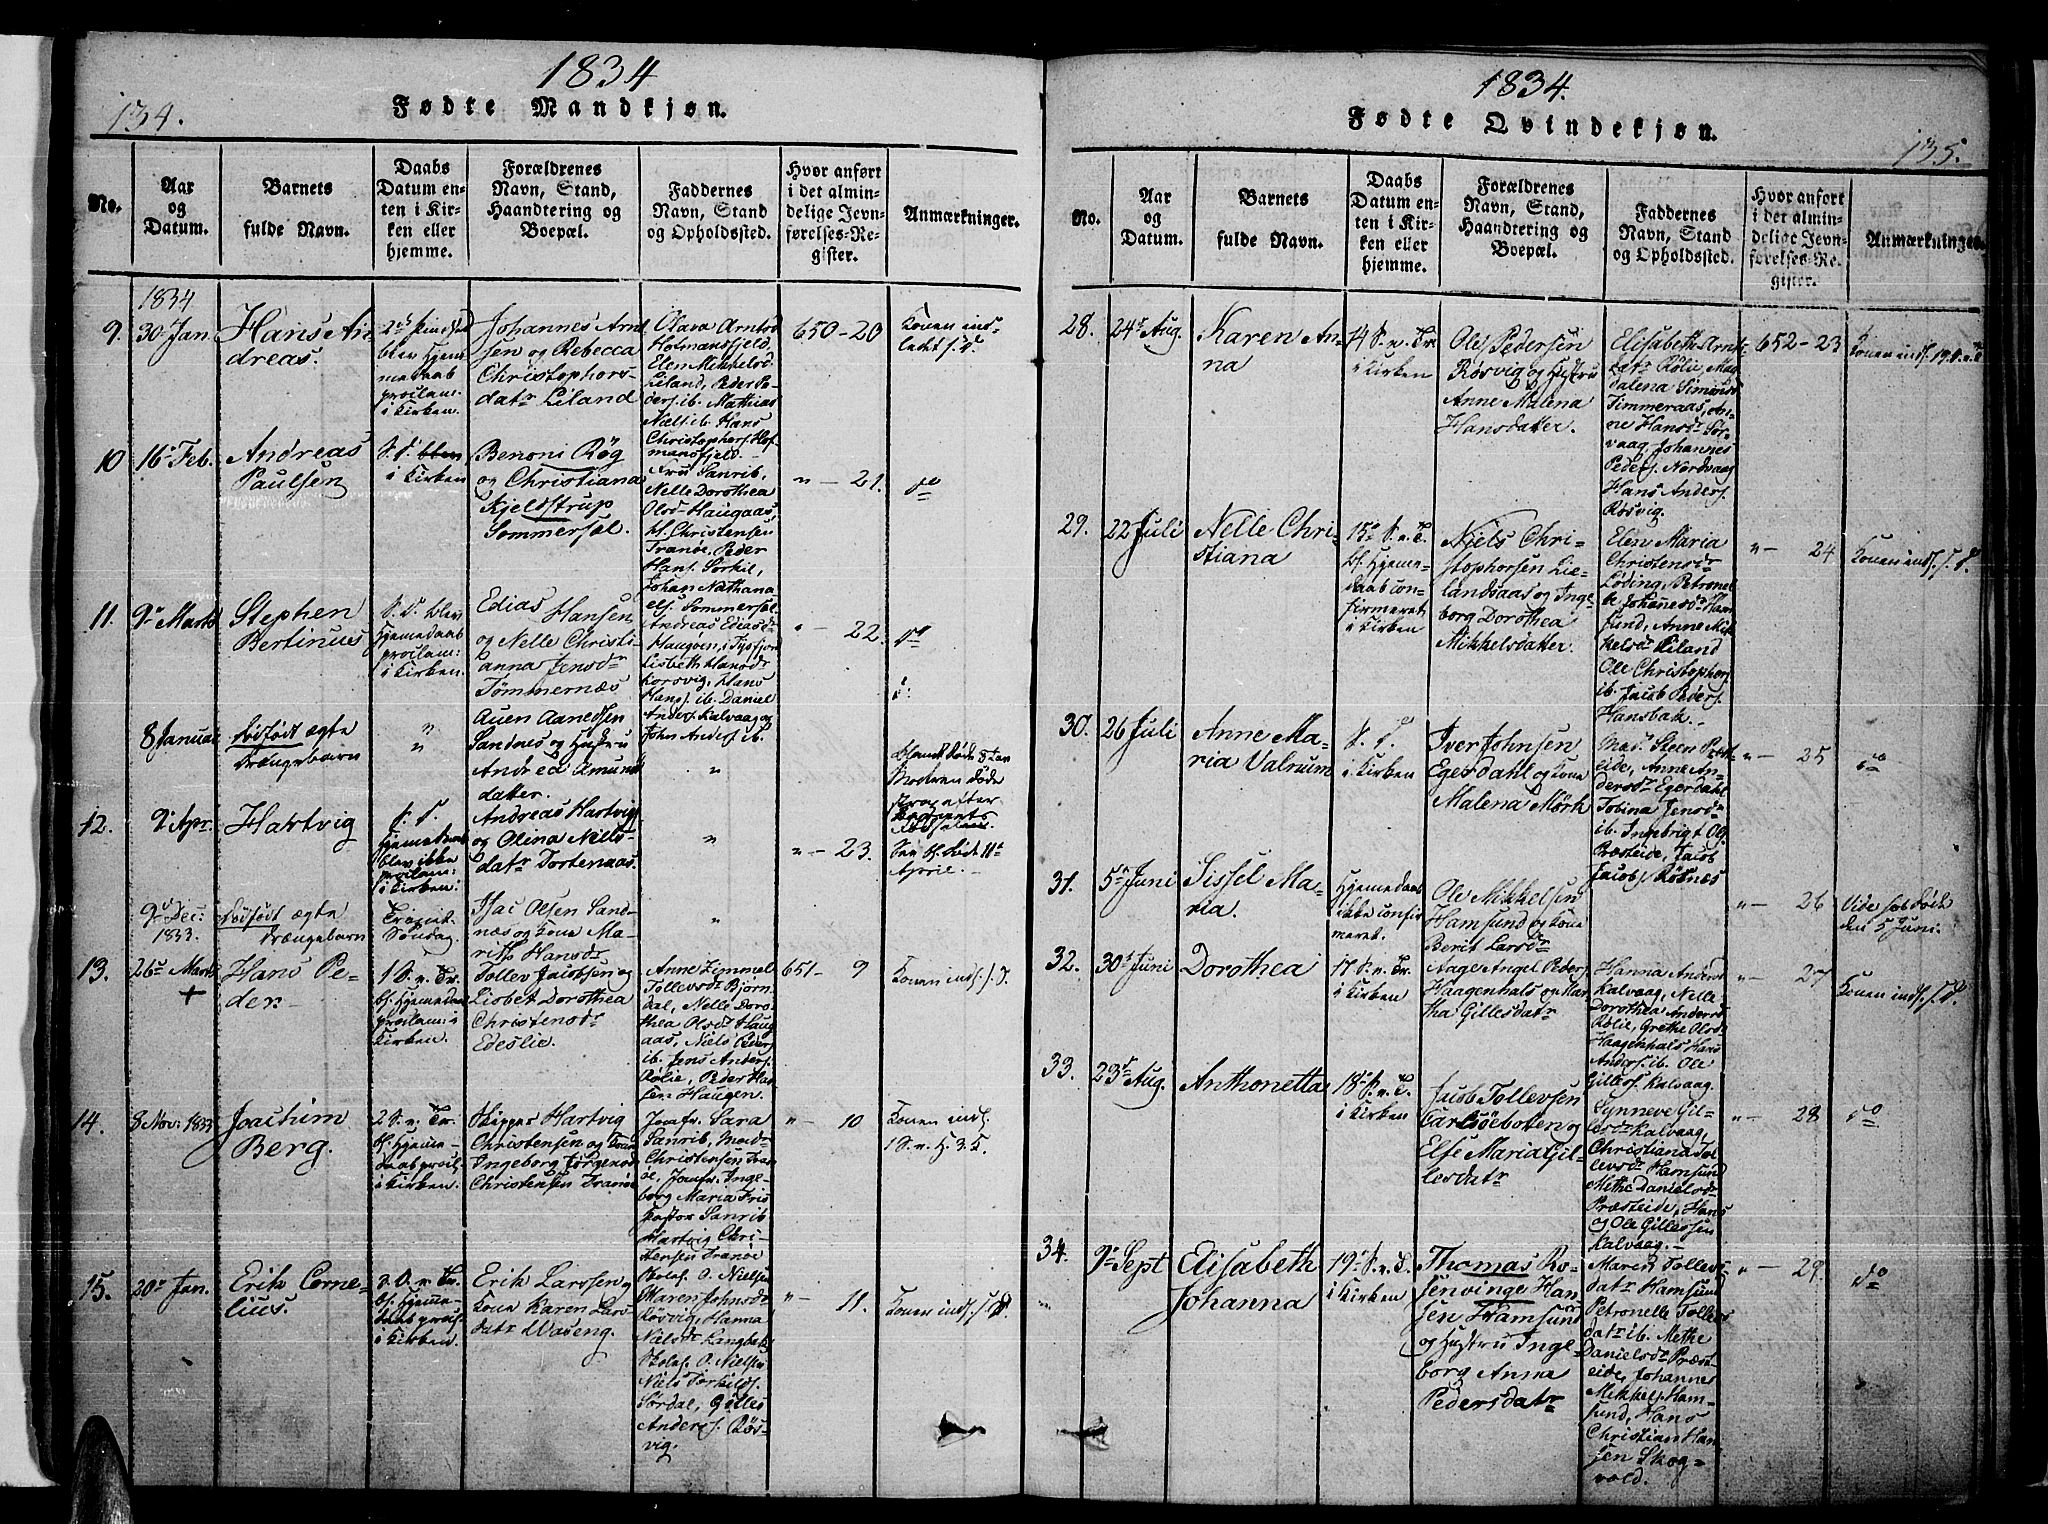 134.
1834
Fødte Mandkjøn.
No.
Aar
og
Datum.
Barnets
fulde Navn.
Daabs
Datum en-
ten i Kir-
ken eller
hjemme.
Forældrenes
Navn, Stand,
Haandtering og
Boepæl.
Faddernes
Navn, Stand
og Opholdssted.
Hvor anført
i det almin-
delige Jevn-
førelses-Re-
gister.
Anmærkninger.
1834
9.
30 Jan.
Hans An-
dreas.
blev hjem-
medaab
proclam:
i Kirken.
Johannes Arnt
sen og Rebecca
Christophers-
datr Liland
Olava Arntsd
Hofmansfjeld,
Elen Mikkelsd
Liland, Peder Pe-
ders. ib. Mathias
Niels. ib. Hans
Christophers. Hof
mansfjeld.
650-20
Konen ind-
ledet s. D.
10
16 Feb.
Andreas
Paulsen
S. D.
i Kirken
Benoni Røg
og Christiana
Kjeldstrup
Sommersel.
Fru Sanrib,
Nelle Dorothea
Olsd Haugaas,
H. Christensen
Tranøe, Peder
Hans. Sørkil,
Johan Nathana
els. Sommersel
"- 21.
do
11.
9 Marts
Stephen
Bertinus
S. D. blev
Hjemmedaab
proclam:
i Kirken.
Edias Hansen
og Nelle Christi-
anna Jensdr
Tømmernæs
Andreas Ediasd
Haugøen, i Tysfjor
Lisbeth Hansdr
Korsvig, Hans
Hans. ib. Daniel
Anders. Kalvaag og
John Anders. ib.
"- 22.
do
8 Januar
Dødfødt ægte
Drængebarn
"
"
Auen Aanedsen
Sandnes og Hustru
Andrea Amund
datter.
"
Modren døde
strax efter
Barnets
Fødselen.
12.
9 Apr.
Hartvig
s. D.
Hjemedaab
blev ikke
proclam:
i Kirken:
Andreas Hartvigs
og Olina Niels-
datr Tortenaas.
"
"- 23.
døde 11te
April.
9 Dec:
1833.
Dødfødt ægte
Drængebarn
Søndag.
Isac Olsen Sand-
næs og Kone Ma-
rith Hansdr
"
13.
26 Marts
+
Hans Pe-
der.
1 S. v. Tr.
bl. Hjemedaa
proclam: i
Kirken.
Tollev Jacobsen og
Lisbet Dorothea
Christensdr
Edeslie.
Anne Zimmel
Tollevsdr Bjørn-
dal, Nelle Doro-
thea Olsdr Haug
aas, Niels Peders
ib. Jens Anders.
Rølie, Peder Han
sen Haugen.
651- 9
Konen inds. s. D.
14.
8 Nov: 1833
Joachim
Berg.
2 S. v. Tr.
bl. Hjemme-
daab procl:
i Kirken.
Skipper Hartvig
Christensen og Kone
Ingeborg Jørgensd
Christensen Tranøe
Jomfr. Sara
Sanrib, Mad.
Christensen Tran
øe, Jomfr. Inge-
borg Maria Friis
Pastor Sanrib
Hartvig Chri-
stensen Tranøe
"- 10
Konen inds.
1 S. v. H. 3 K.
15.
20 Jan.
Erik Corne-
lius.
2. S. v. Tr.
bl. Hjemme-
daab procl:
i Kirken.
Erik Larssen og
Kone Karen Lars
datr Waseng.
Skolef. O. Nielsen
Maren Johnsdr
Røsvig, Hanna
Nielsdr Langbek,
Skolef. O. Nielsen
Niels Torkilds.
Sørdal, Gilles
Anders. Røs-
vig.
"- 11.
Konen inds. s. D.
1834.
Fødte Qvindekjøn.
135.
No.
Aar
og
Datum.
Barnets
fulde Navn.
Daabs
Datum en-
ten i Kir-
ken eller
hjemme.
Forældrenes
Navn, Stand,
Haandtering og
Boepæl.
Faddernes
Navn, Stand
og Opholdssted.
Hvor anført
i det almin-
delige Jevn-
førelses-Re-
gister.
Anmærkninger.
28.
24 Aug.
Karen An-
na
14 S. v. Tr.
i Kirken
Ole Pedersen
Røsvig og Hustru
Anne Malena
Hansdatter.
Elisabeth Arnt-
datr Rølie, Mag
dalena Simonsd
Timmeraas, An-
ne Hansdr Sør-
vaag, Johannes
Peders. Nordvaag
Hans Anders.
Røsvig.
652-23
Konen inds. 19 S. v. T.
29.
22 Juli
Nelle Chri-
stiana
15 S. v. T.
bl. Hjemme-
daab con-
firmeret
i Kirken
Niels Chri-
stophersen Lie-
landsaas og Inge-
borg Dorothea
Mikkelsdatter.
Elen Maria
Christensdr
Løding, Petronel
le Johanesdr Ham
sund, Anne Mik-
kelsdr Liland
Ole Christophers
ib. Jacob Peders.
Hansbak.
"- 24
Konen inds. s. D.
30.
26 Juli
Anne Ma-
ria Valrum
S. D.
i Kirken
Iver Johnsen
Egerdahl og Kone
Malena Mørk
Mad. Steen Præst-
eide, Anne An-
dersdr Egerdahl
Tobina Jensdr
ib. Ingebrigt Ols.
Præsteide, Jacob
Jacobs. Robnæs
"- 25
do
31.
5 Juni
Sissel Ma-
ria.
Hjemedaab
ikke confir
meret.
Ole Mikkelsen
Hamsund og Kone
Berit Larsdr
"- 26
Vide døde
den 5 Juni.
32.
30 Juni
Dorothea
17 S. v. Tr.
i Kirken
Aage Angel Peders
Haagenhals og Mar
tha Gillesdatr
Hanna Andersd
Kalvaag, Nelle
Dorothea Andersd
Rølie, Grethe Olsd
Haagenhals Hans
Anders. ib. Ole
Gilles. Kalvaag.
"- 27
Konen inds. s. D.
33.
23 Aug.
Anthonetta
18 S. v. T.
i Kirken
Jacob Tollevsen
Carlsöebotten og
Else Maria Gil-
lesdatr
Synneve Gil-
lesdr Kalvaag,
Christiana Tol
levsdr Hamsund
Methe Danielsdr
Præsteide, Hans
og Ole Gillessen
Kalvaag.-
"- 28
do
34.
9 Sept
Elisabeth
Johanna
19 S. v. T.
i Kirken
Thomas Ro-
senvinge Han
sen Hamsund
og Hustru Inge-
borg Anna
Pedersdatr
Maren Tollevs
datr Hamsund
Petronelle Tollevs
datr ib. Methe
Danielsdr Præst-
eide, Johannes
Mikkels. Ham-
sund, Hans
Christian Han
sen Skog-
vold.
"- 29.
do